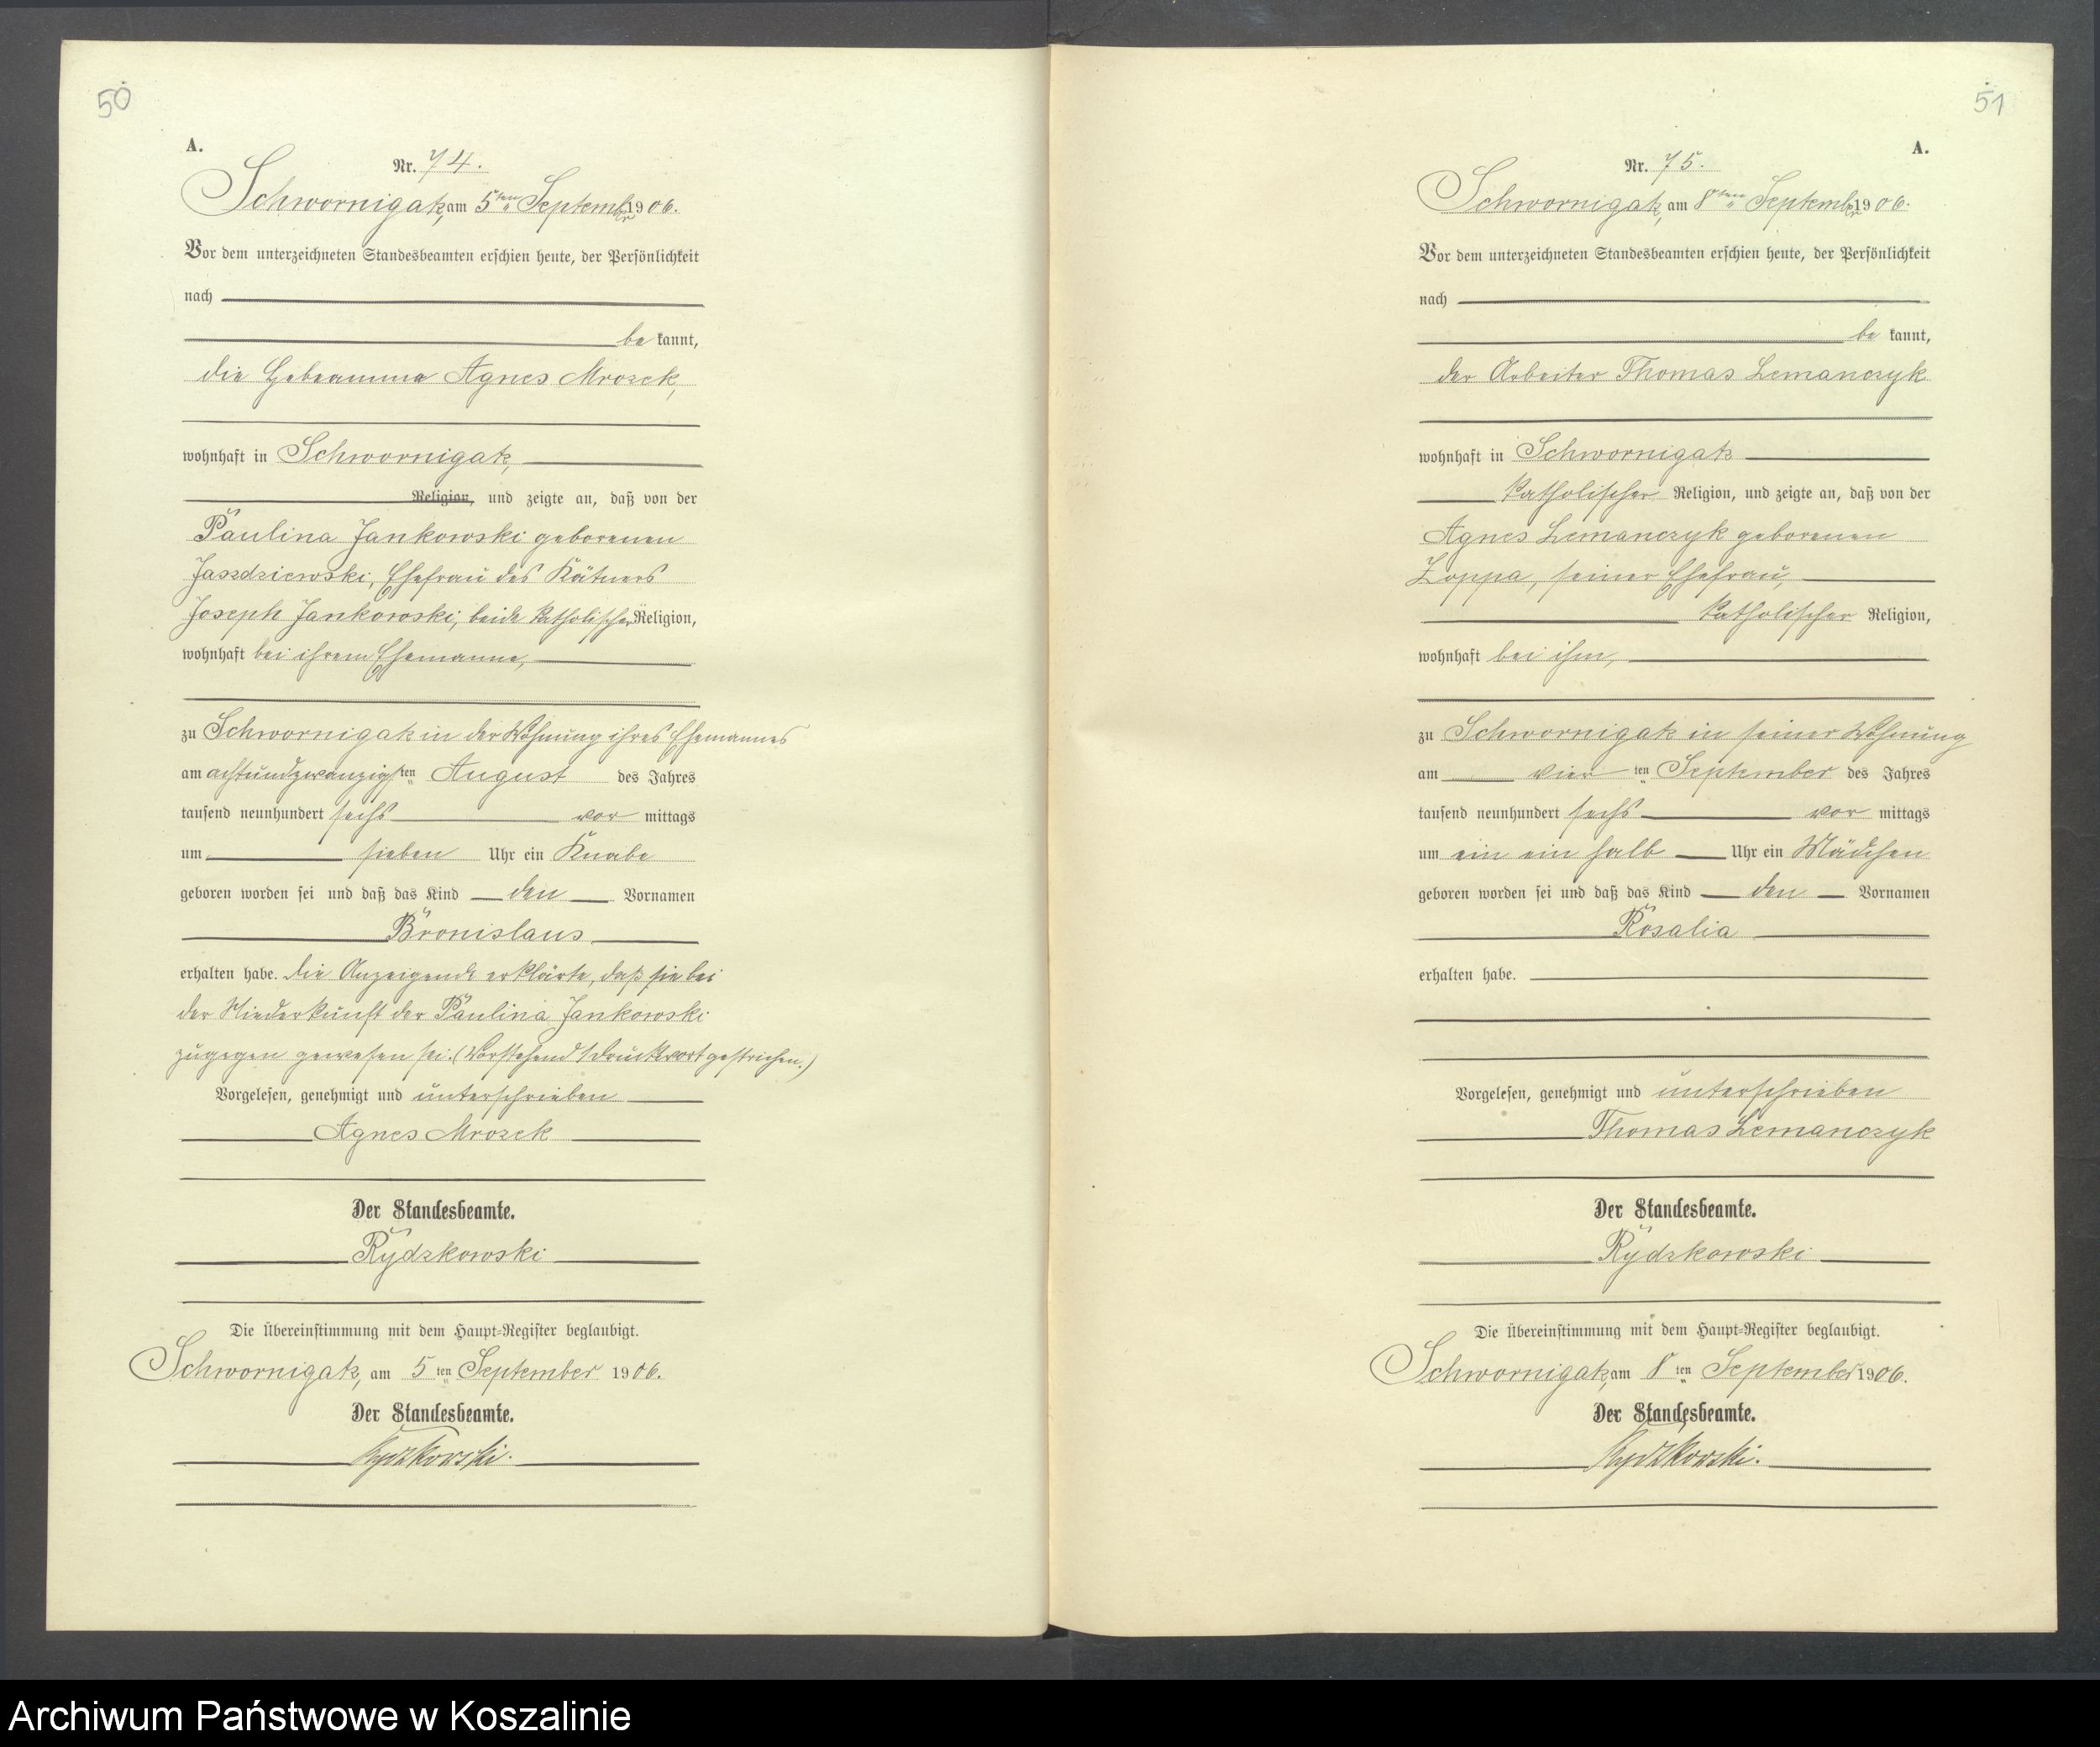 50
A.
Nr. 74.
Schwornigatz, am 5ten September 1906.
Vor dem unterzeichneten Standesbeamten erschien heute, der Persönlichkeit
nach
be kannt,
die Hebeamme Agnes Mrozek,
wohnhaft in Schwornigatz,
Religion, und zeigte an, daß von der
Paulina Jankowski geborenen
Jaszdziewski, Ehefrau des Kätners
Joseph Jankowski, beide katholischer Religion,
wohnhaft bei ihrem Ehemanne,
zu Schwornigatz in der Wohnung ihres Ehemannes
am achtundzwanzigsten August des Jahres
tausend neunhundert sechs vor mittags
um sieben Uhr ein Knabe
geboren worden sei und daß das Kind den Vornamen
Bronislaus
erhalten habe. Die Anzeigende erklärte, daß sie bei
der Niederkunft der Paulina Jankowski
zugegen gewesen sei. (Vorstehend 1 Druckwort gestrichen.)
Vorgelesen, genehmigt und unterschrieben
Agnes Mrozek
Der Standesbeamte.
Rydzkowski
Die Übereinstimmung mit dem Haupt-Register beglaubigt.
Schwornigatz, am 5ten September 1906.
Der Standesbeamte.
Rydzkowski.
51
A.
Nr. 75.
Schwornigatz, am 8ten September 1906.
Vor dem unterzeichneten Standesbeamten erschien heute, der Persönlichkeit
nach
be kannt,
der Arbeiter Thomas Lemanczyk
wohnhaft in Schwornigatz
katholischer Religion, und zeigte an, daß von der
Agnes Lemanczyk geborenen
Zoppa, seiner Ehefrau,
katholischer Religion,
wohnhaft bei ihm,
zu Schwornigatz in seiner Wohnung
am vier ten September des Jahres
tausend neunhundert sechs vor mittags
um ein ein halb Uhr ein Mädchen
geboren worden sei und daß das Kind den Vornamen
Rosalia
erhalten habe.
Vorgelesen, genehmigt und unterschrieben
Thomas Lemanczyk
Der Standesbeamte.
Rydzkowski
Die Übereinstimmung mit dem Haupt-Register beglaubigt.
Schwornigatz, am 8ten September 1906.
Der Standesbeamte.
Rydzkowski.
Archiwum Państwowe w Koszalinie